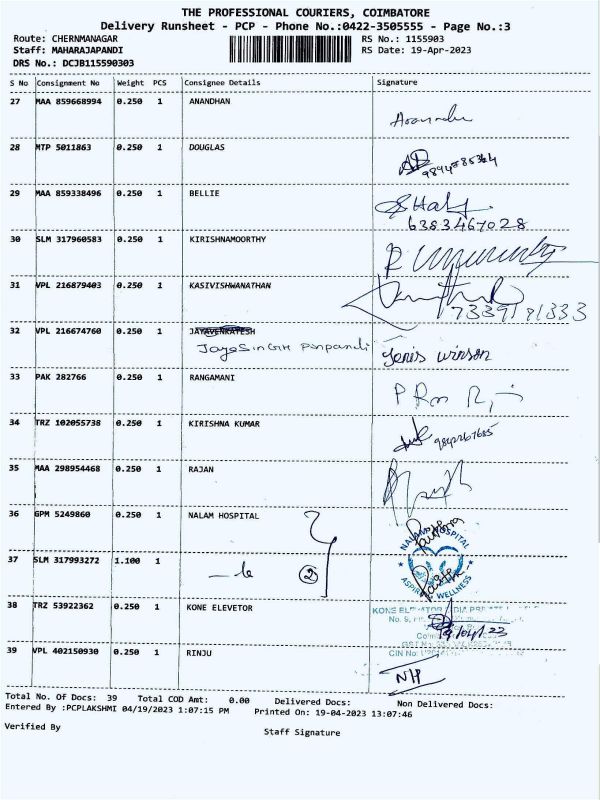 THE PROFESSIONAL COURIERS, COIMBATORE
Delivery Runsheet - PCP - Phone No.:0422-3505555 - Page No.:3
Route: CHERNMANAGAR RS No.: 1155903
Staff: MAHARAJAPANDI RS Date: 19-Apr-2023
DRS No.: DCJB115590303
S No Consignment No Weight PCS Consignee Details Signature
27 MAA 859668994 0.250 1 ANANDHAN
28 MTP 5011863 0.250 1 DOUGLAS
29 MAA 859338496 0.250 1 BELLIE
6383467028
30 SLM 317960583 0.250 1 KIRISHNAMOORTHY
31 VPL 216879403 0.250 1 KASIVISHWANATHAN
32 VPL 216674760 0.250 1 JAYAVENKATESH
Jenis winson
33 PAK 282766 0.250 1 RANGAMANI
34 TRZ 102055738 0.250 1 KIRISHNA KUMAR
35 MAA 298954468 0.250 1 RAJAN
36 GPM 5249860 0.250 1 NALAM HOSPITAL
NALAM HOSPITAL
37 SLM 317993272 1.100 1 2
WELLNESS
38 TRZ 53922362 0.250 1 KONE ELEVETOR
19/04/23
39 VPL 402150930 0.250 1 RINJU
Total No. Of Docs: 39 Total COD Amt: 0.00 Delivered Docs: Non Delivered Docs:
Entered By :PCPLAKSHMI 04/19/2023 1:07:15 PM Printed On: 19-04-2023 13:07:46
Verified By Staff Signature